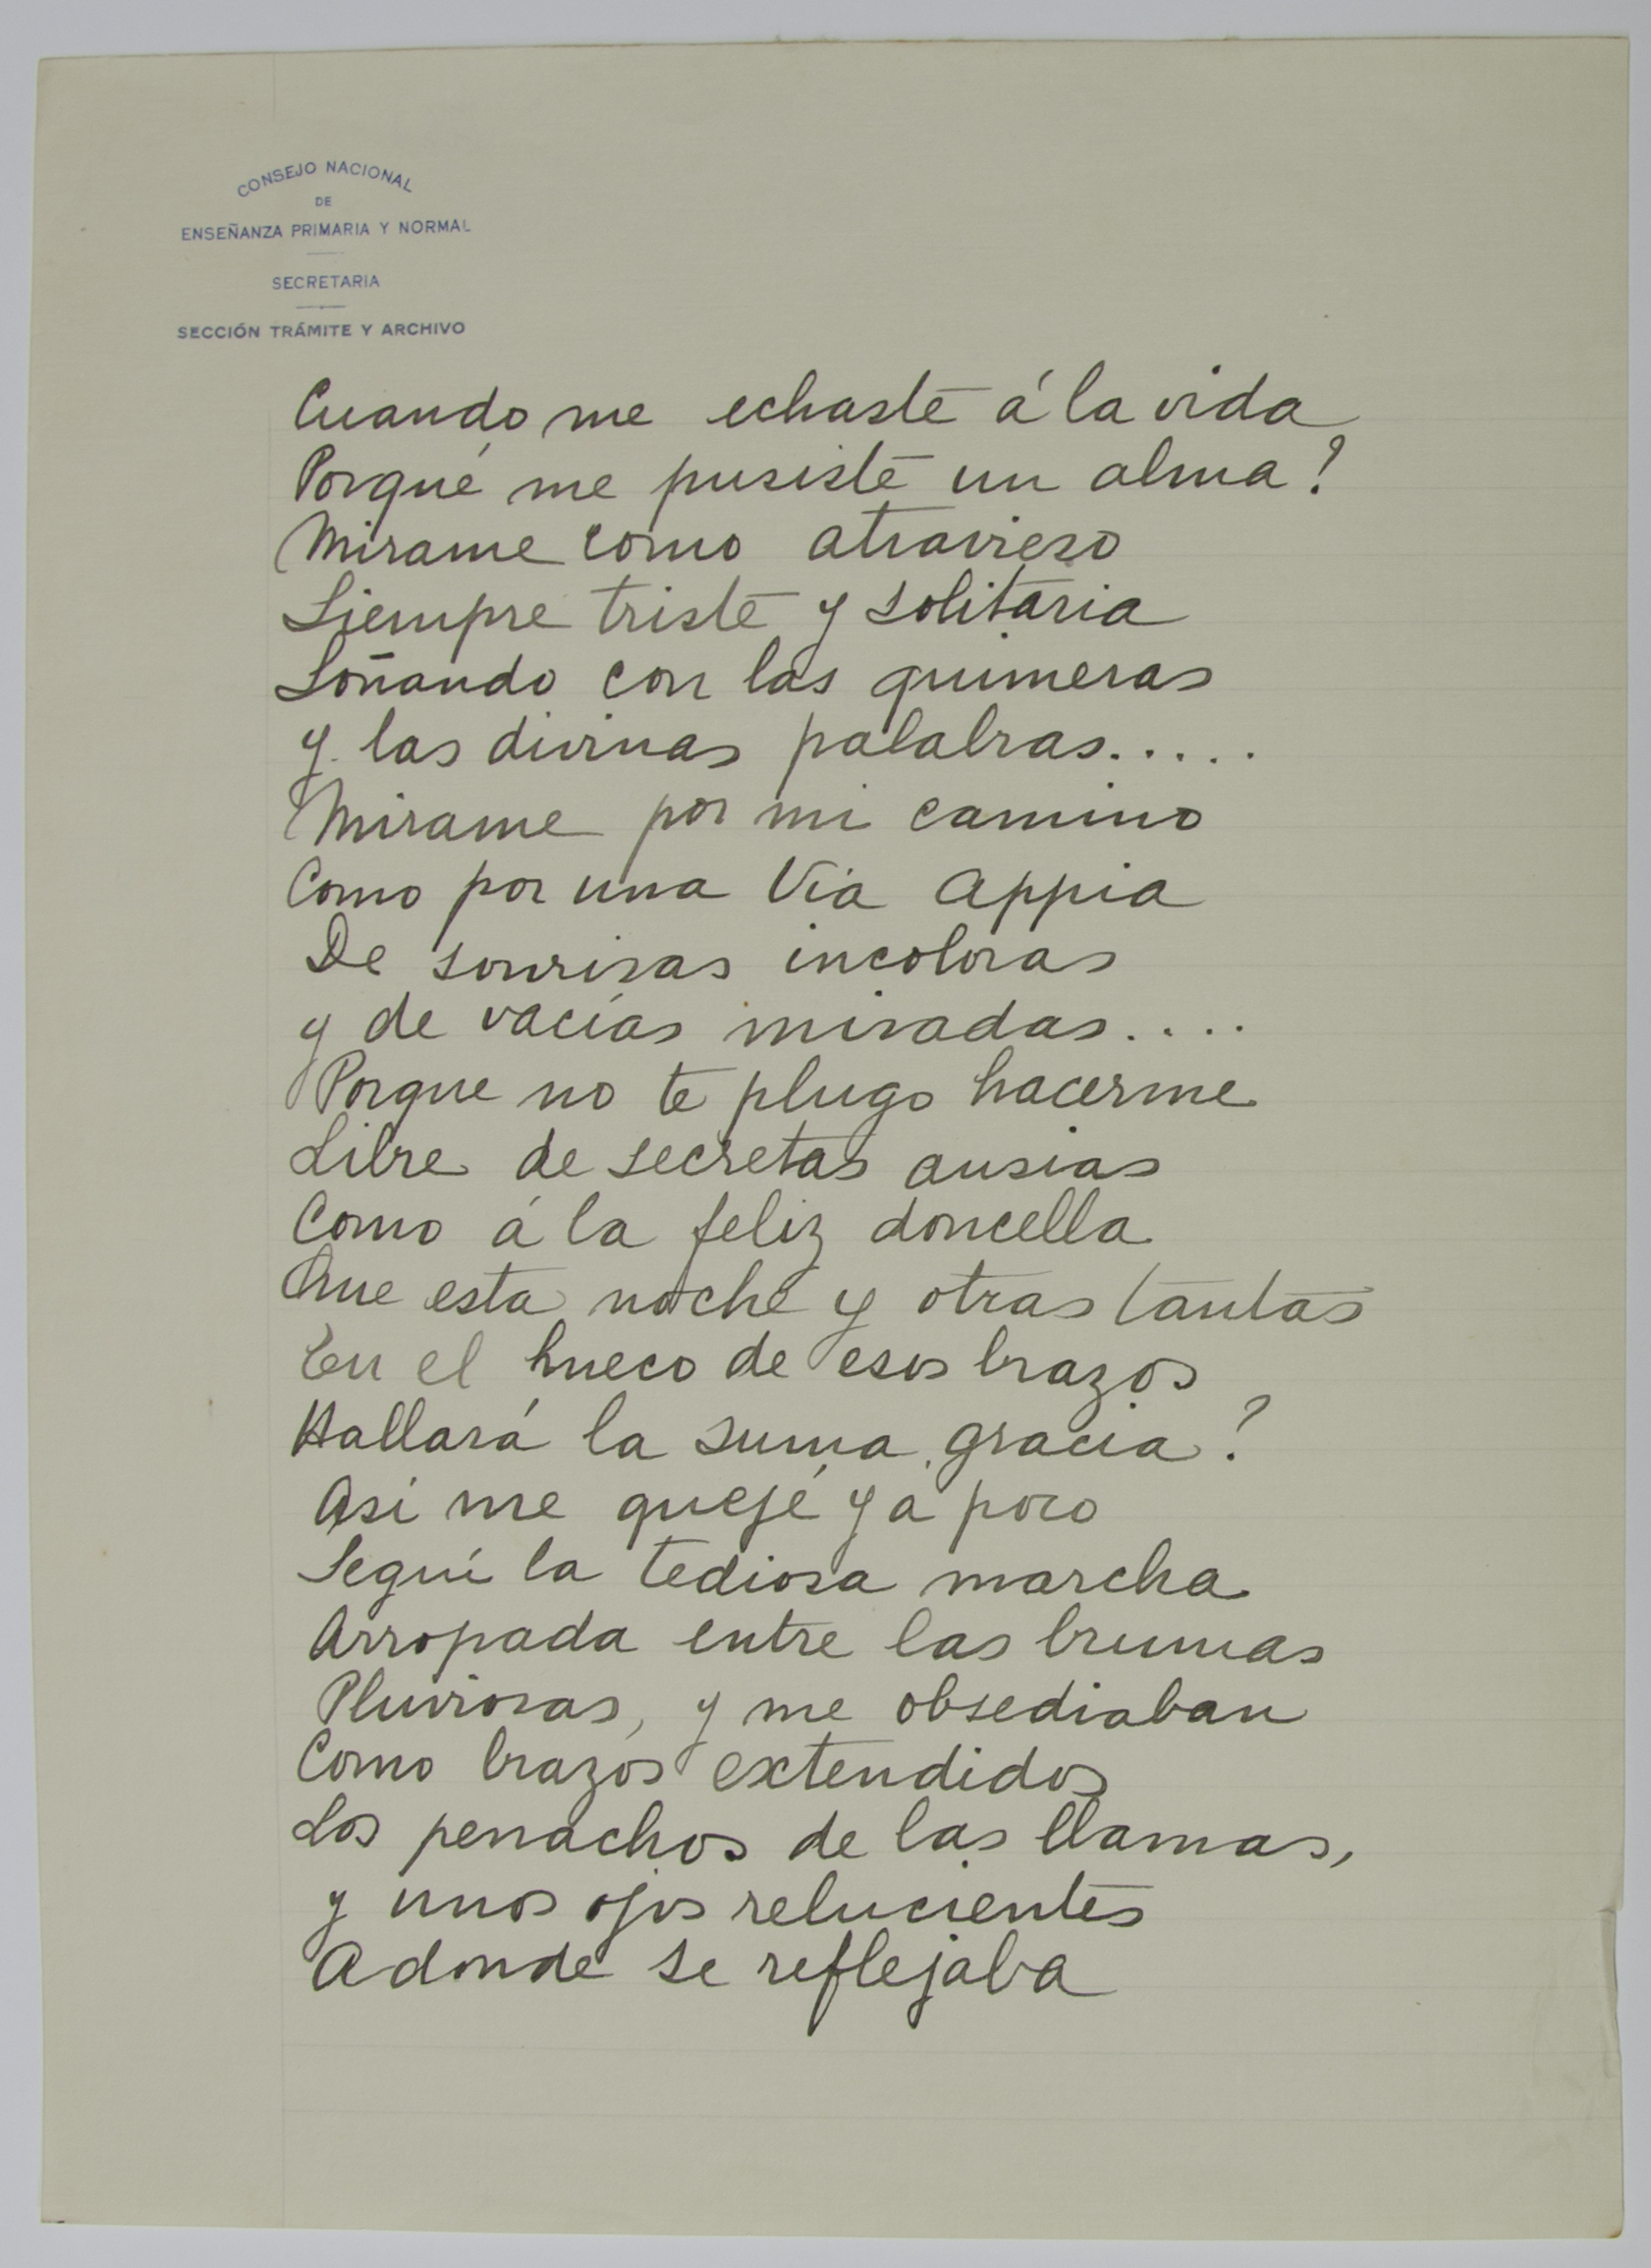 CONSEJO NACIONAL
DE
ENSEÑANZA PRIMARIA Y NORMAL
SECRETARIA
SECCIÓN TRÁMITE Y ARCHIVO
Cuando me echaste á la vida
Porqué me pusiste un alma?
Mirame como atravieso
Siempre triste y solitaria
Soñando con las quimeras
y las divinas palabras.....
Mirame por mi camino
Como por una Via Appia
De sonrisas incoloras
y de vacías miradas....
Porque no te plugo hacerme
Libre de secretas ansias
Como á la feliz doncella
Que esta noche y otras tantas
En el hueco de esos brazos
Hallará la suma gracia?
Asi me quejé y a poco
Seguí la tediosa marcha
Arropada entre las brumas
Pluviosas, y me obsediaban
Como brazos extendidos
Los penachos de las llamas,
y unos ojos relucientes
Adonde se reflejaba